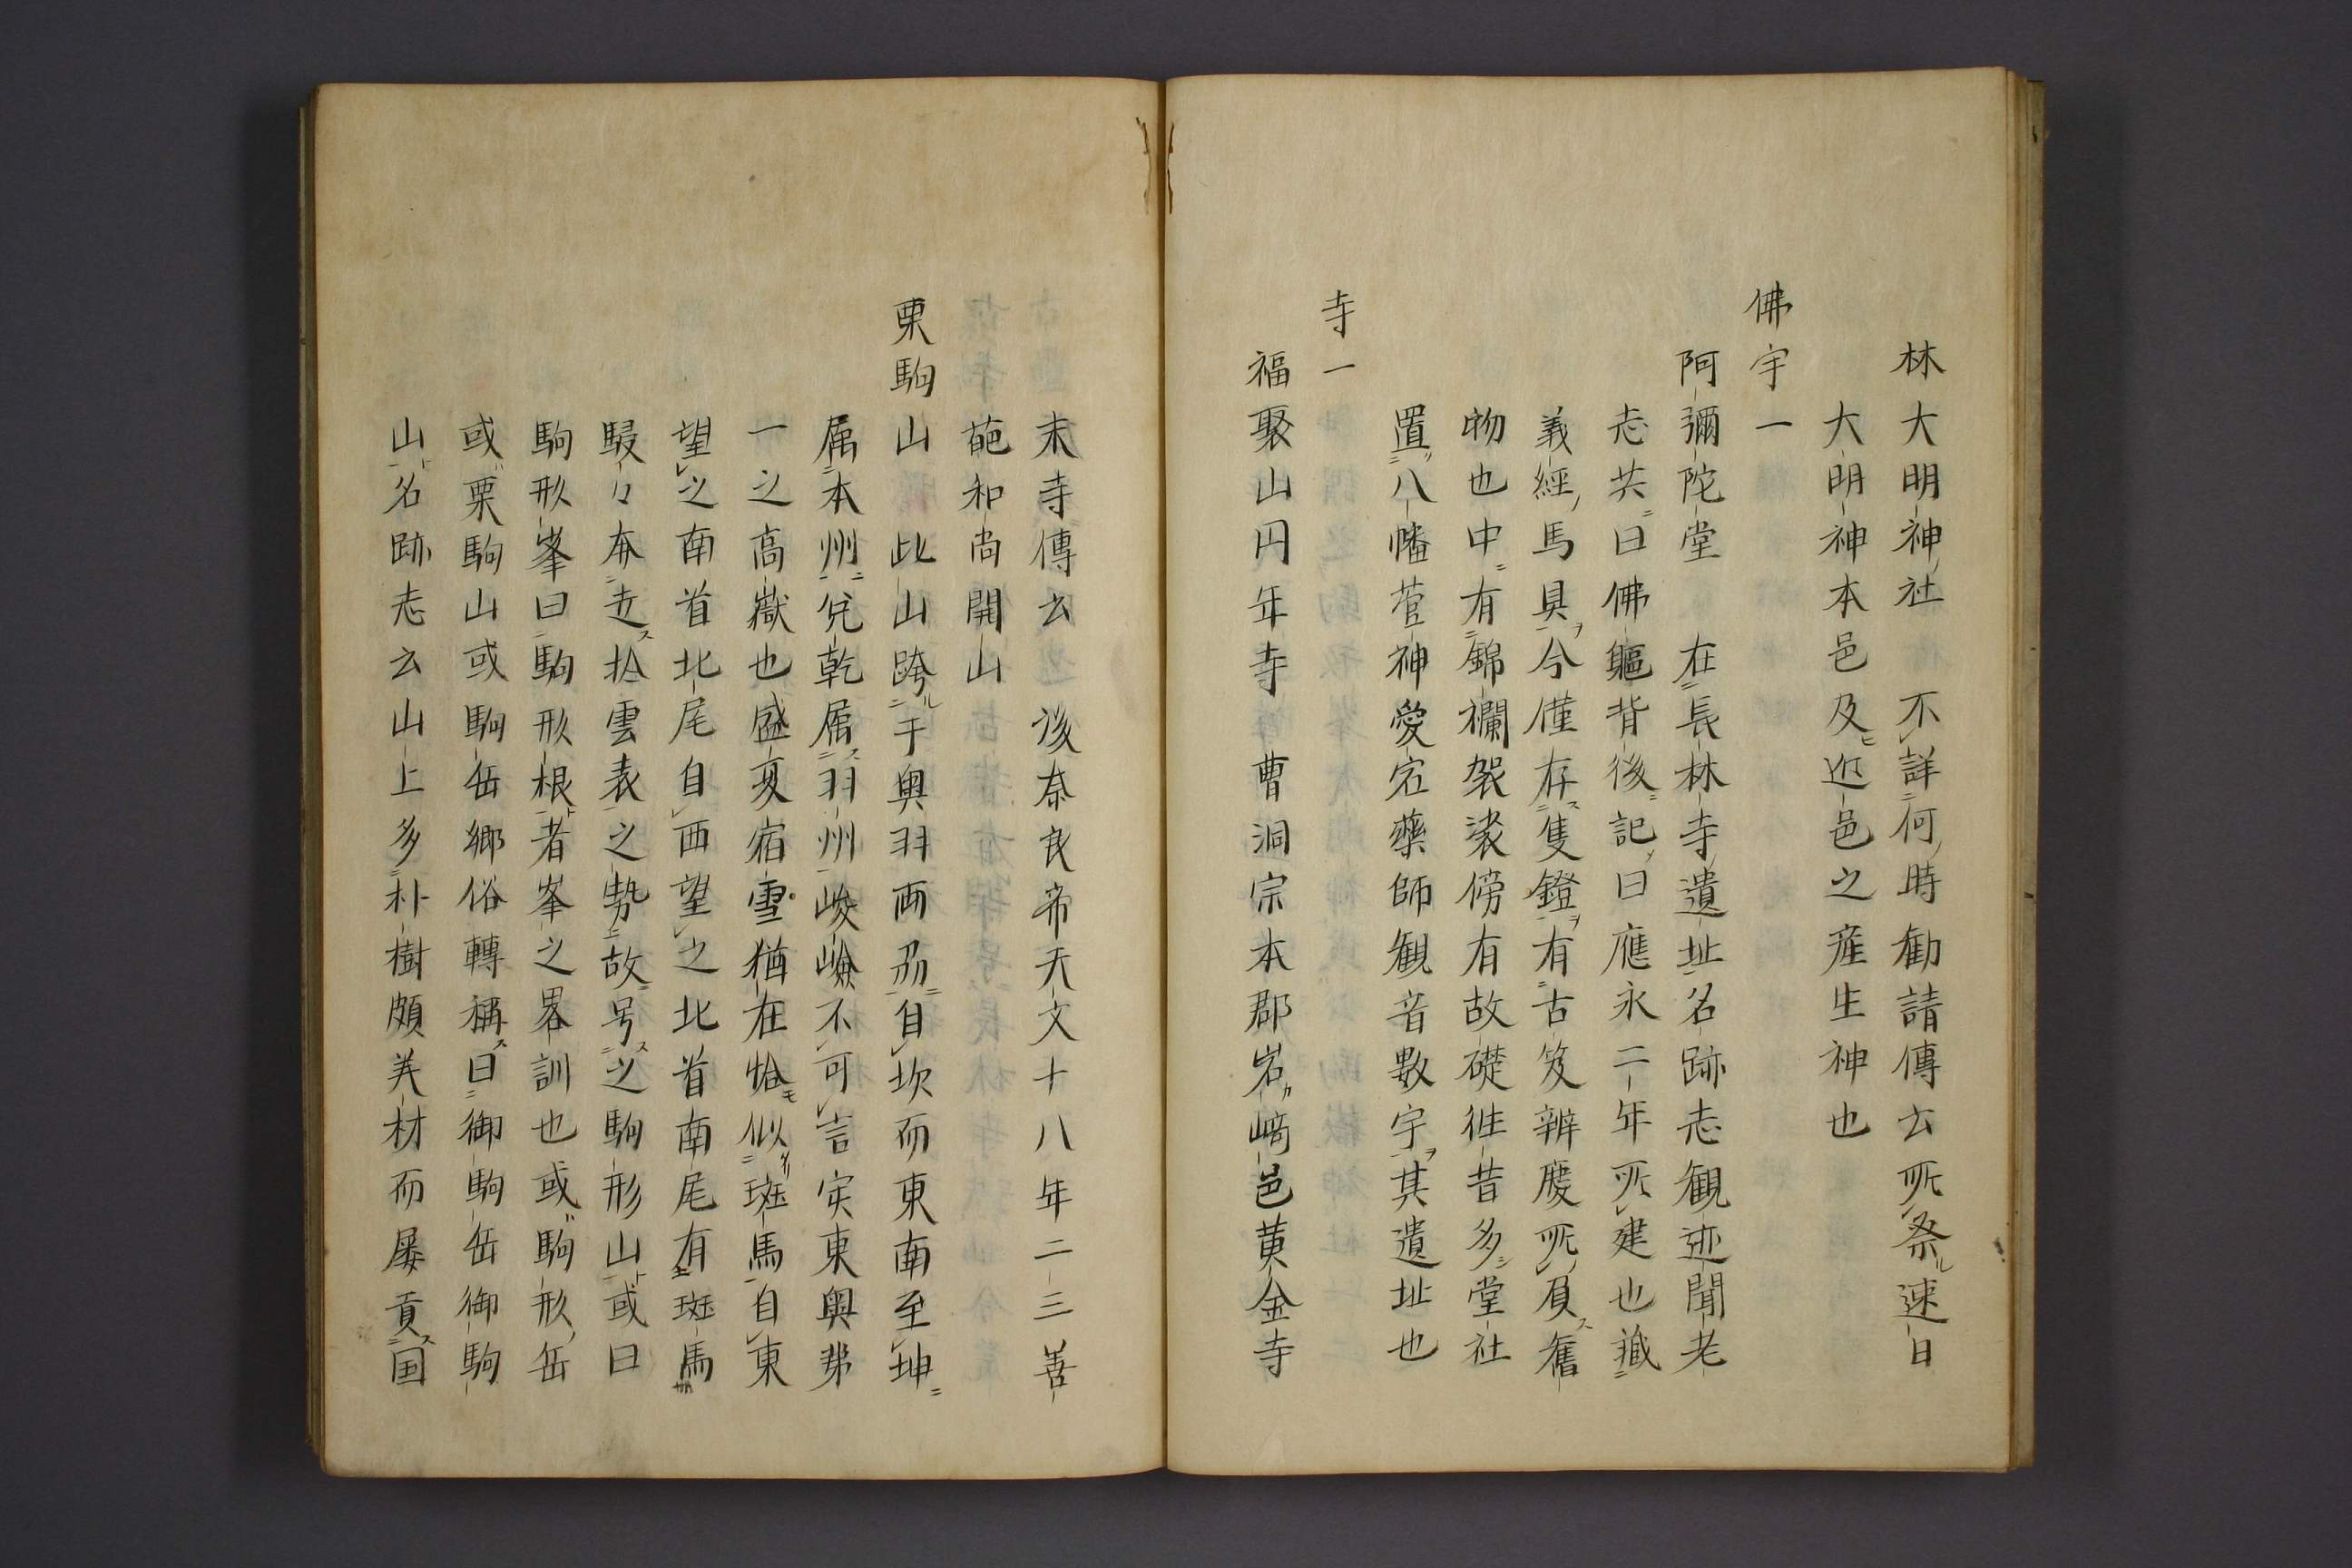 林大明神社　不詳何時勧請傳云所祭速日
大明神本邑及近邑之産生神也
佛宇一
阿彌陀堂　在長林寺遺址名跡志観迹聞老
志共曰佛軀背後記曰應永二年所建也蔵
義經馬具今僅存隻鐙有古笈辨慶所負舊
物也中有錦襴袈裟傍有故礎徃昔多堂社
置八幡菅神愛宕藥師観音數宇其遺址也
寺一
福聚山円年寺　曹洞宗本郡岩﨑邑黄金寺
末寺傳云後奈良帝天文十八年二三善
葩和尚開山
栗駒山　此山跨于奥羽両刕自坎而東南至坤
属本州兌乾属羽州峻嶮不可言実東奥第
一之高嶽也盛夏宿雪猶在恰似斑馬自東
望之南首北尾自西望之北首南尾有斑馬
駸々奔走於雲表之勢故号之駒形山或曰
駒形峯曰駒形根者峯之畧訓也或駒形岳
或栗駒山或駒岳郷俗轉稱曰御駒岳御駒
山名跡志云山上多朴樹頗美材而屡貢国